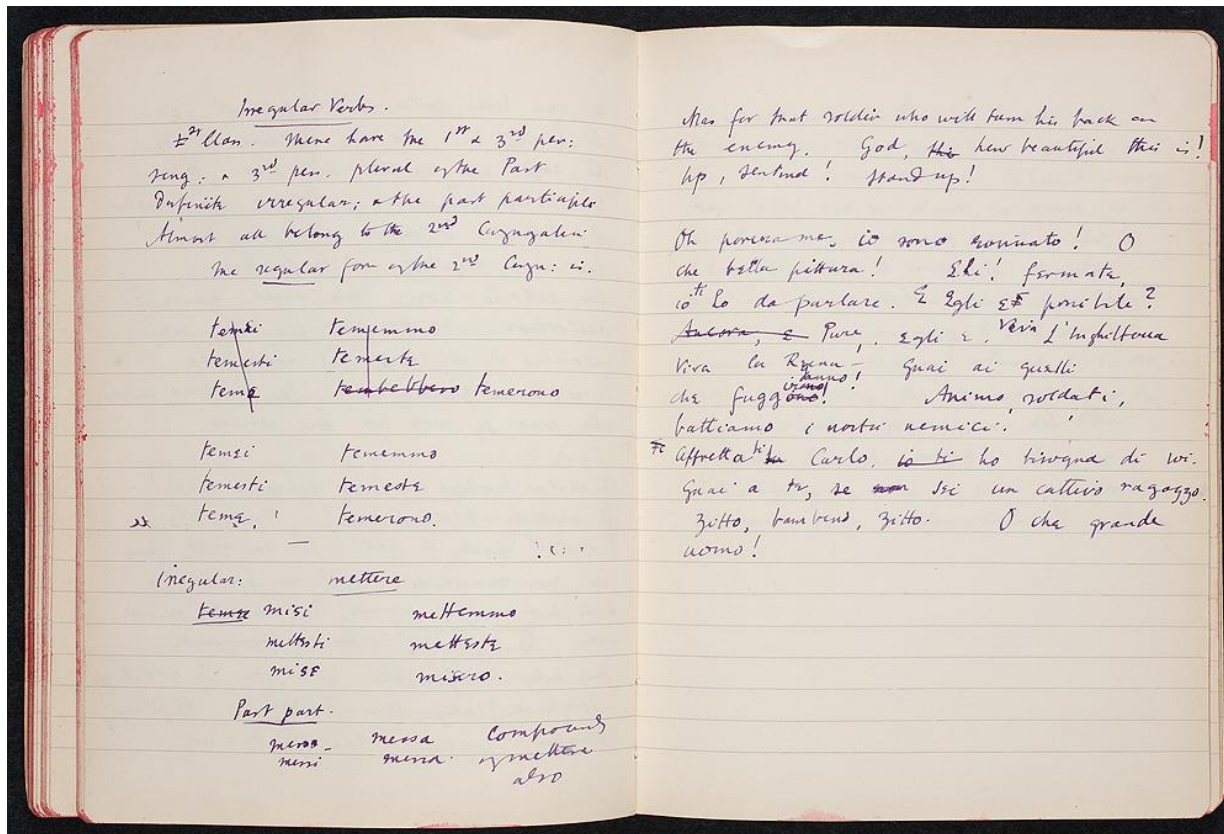 Irregular Verbs.
Class. These have the 1st & 3rd per:
sing: & 3rd pers. plural of the Past
Definite irregular; & the past participle
Almost all belong to the 2nd Conjugation
The regular form of the 2nd Conju: is.
temei temiemmo
temesti temeste
teme tembebbero temerono
temei tememmo
temesti temeste
teme, temerono.
Irregular: mettere
teme misi mettemmo
mettesti metteste
mise misero.
Past part.
messo- messa Compounds
messi messa. of mettere
also
Alas for that soldier who will turn his back on
the enemy. God, this how beautiful this is!
Up, sentinel! Stand up!
Oh povera me, io sono rovinato! O
che bella pittura! Ehi! fermate,
io ti ho da parlare. E Egli è possibile?
Ancora, e Pure, egli e. Viva L'Inghilterra
Viva la Regina - Guai ai quelli
che fuggono! Animo, soldati,
battiamo i nostri nemici.
Affretta ti tu Carlo, io ti ho bisogna di vi.
Guai a te, se non sei un cattivo ragazzo.
Zitto, bambino, zitto. O che grande
uomo!